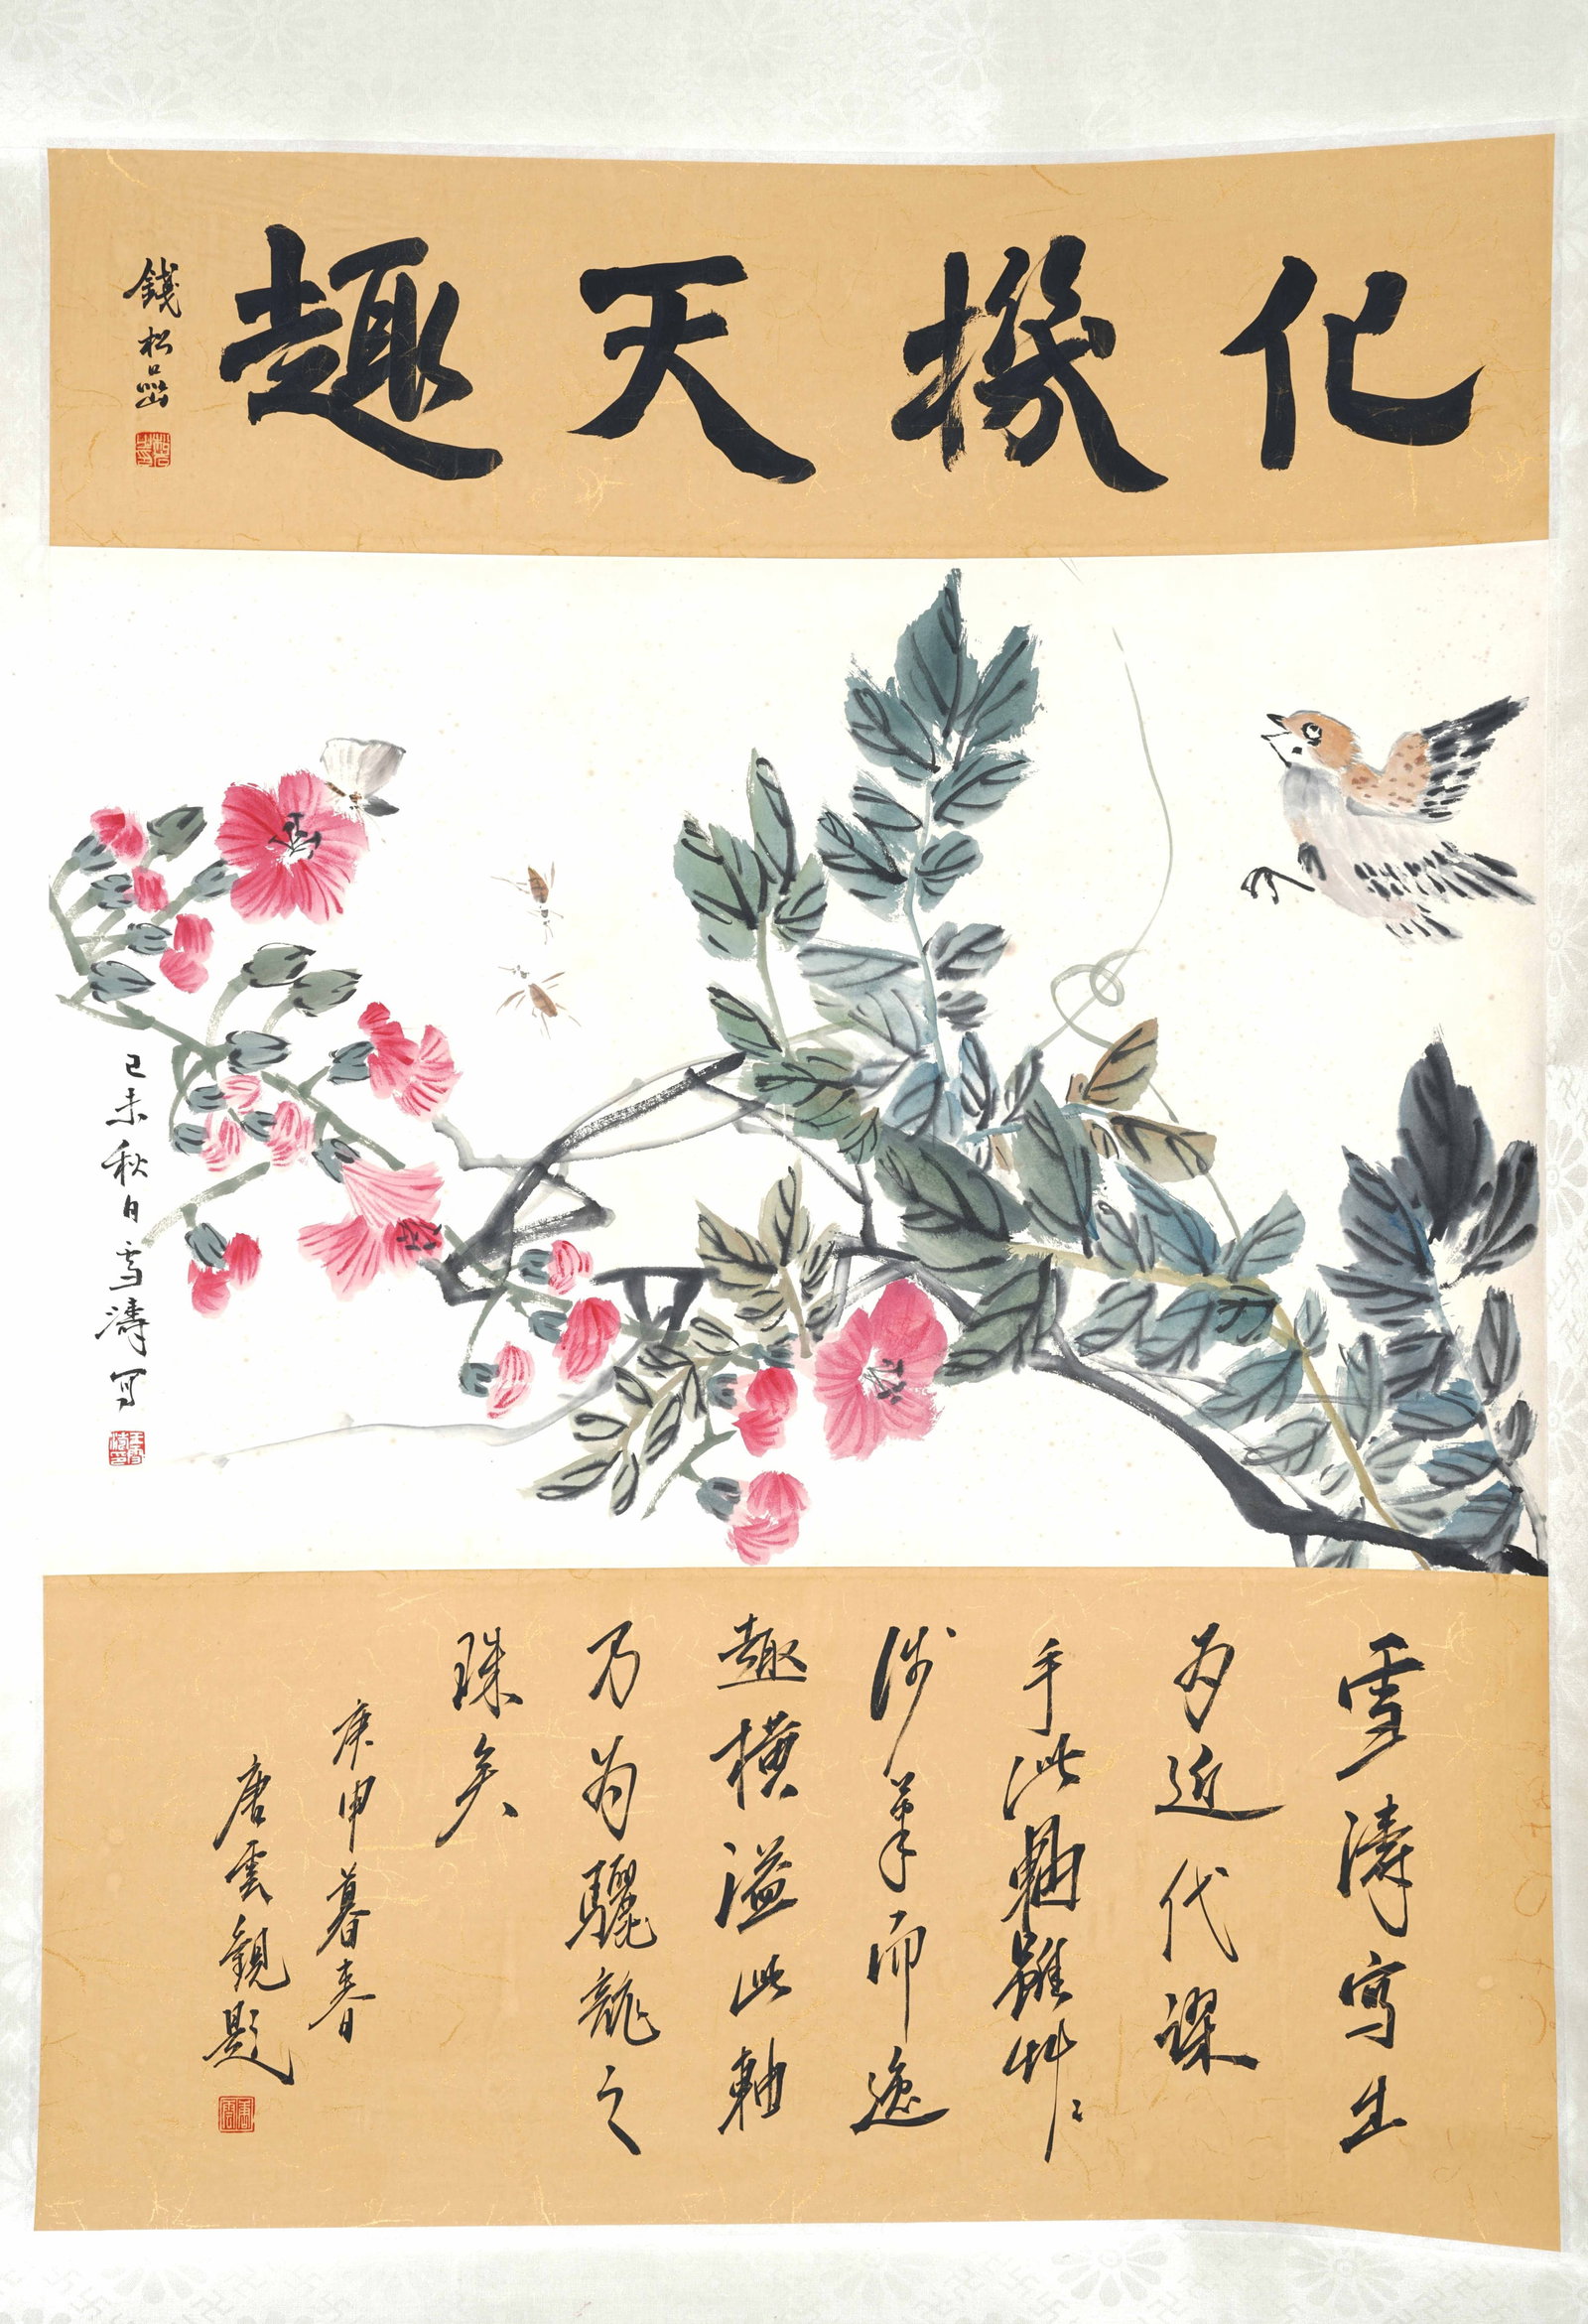 化機天趣
錢松嵒
己未秋日雪濤寫
雪濤寫生
为近代謬
手此軸雖艸艸
涉筆而逸
趣橫溢此軸
乃为驪龍之
珠矣
庚申暮春
唐雲觀題